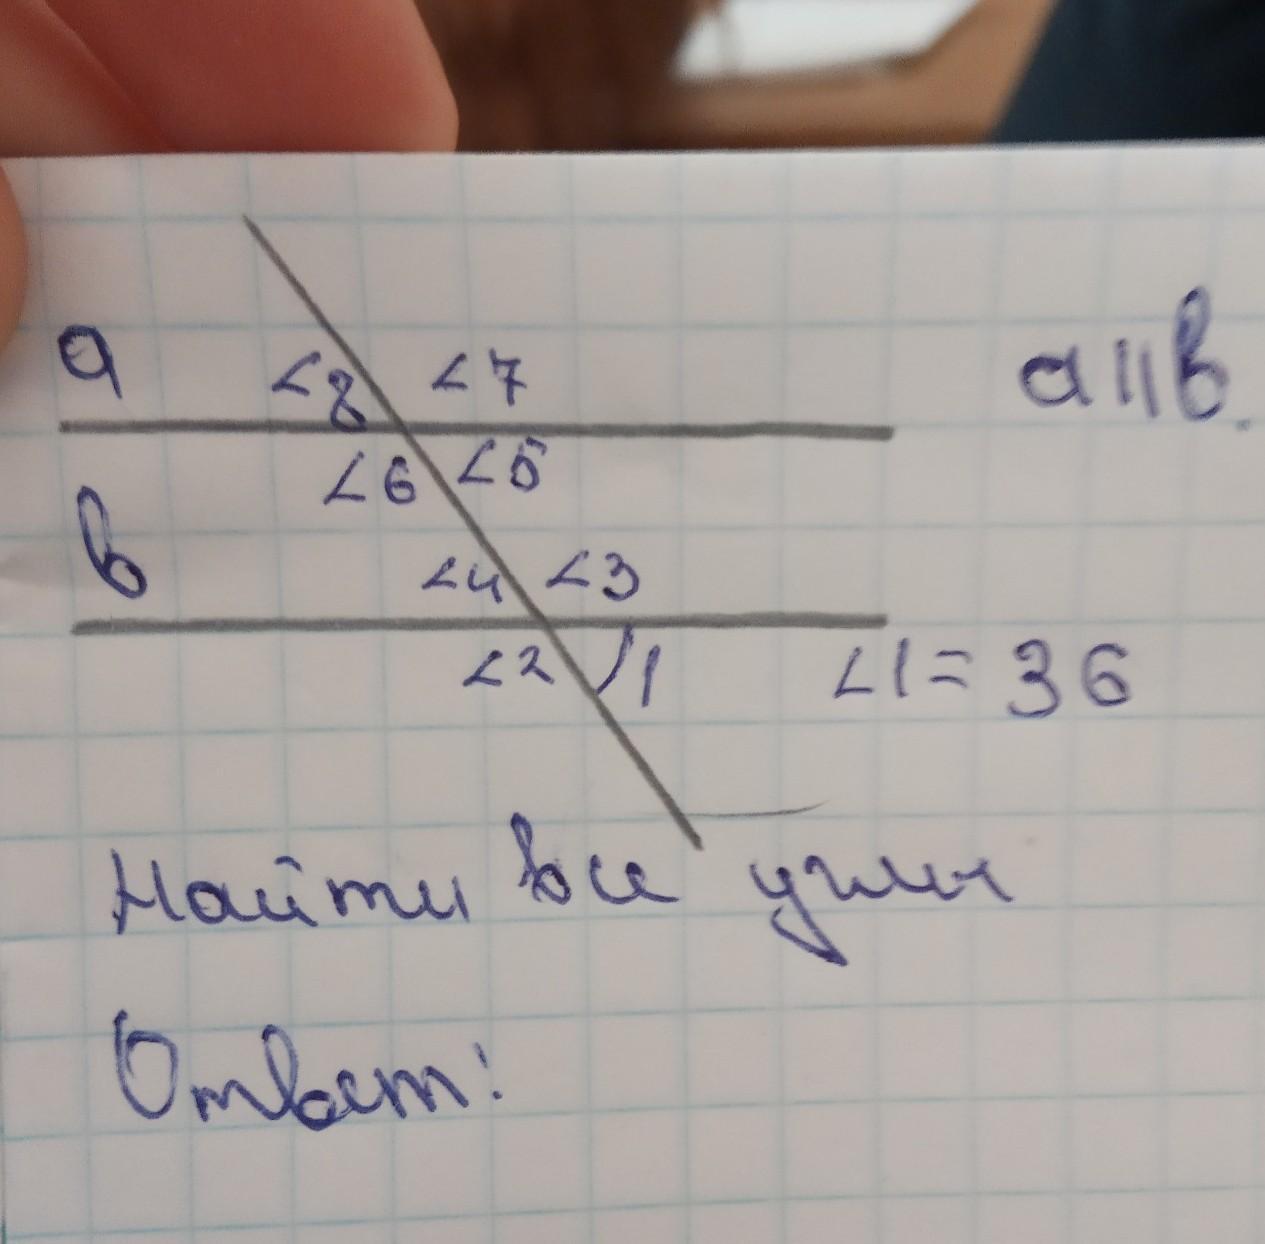 a ∠8 ∠7 a||b.
∠6 ∠5
b ∠4 ∠3
∠2 1 ∠1= 36
Найти все углы
Ответ: